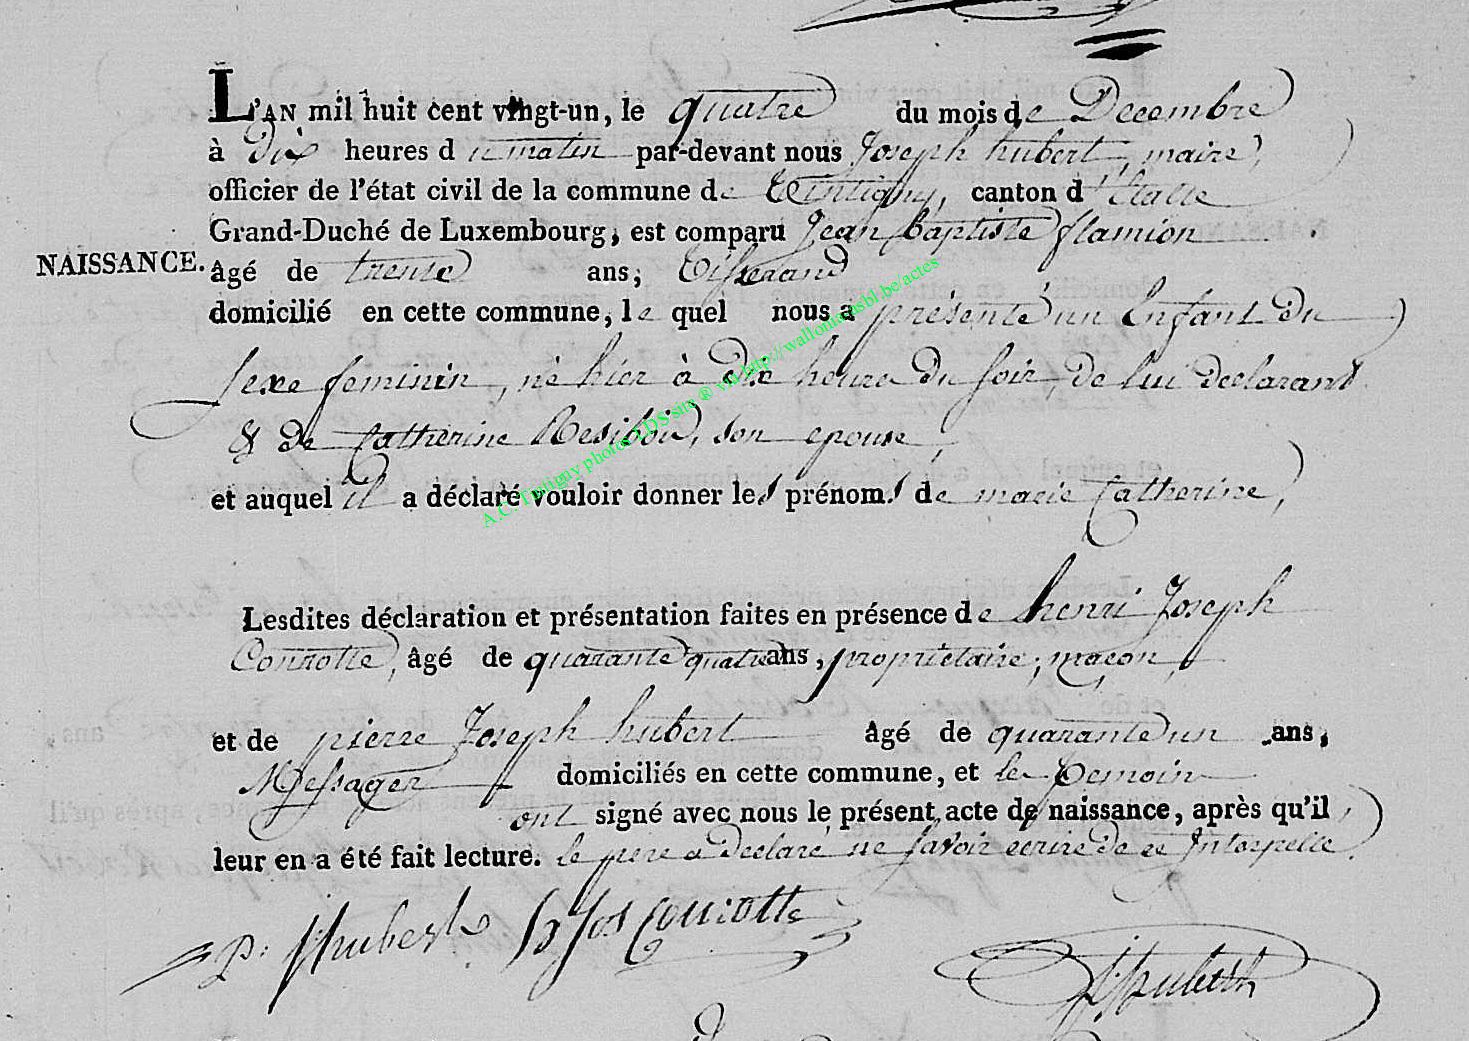 L'AN mil huit cent vingt-un, le quatre du mois de Decembre
à dix heures du matin par-devant nous Joseph hubert, maire,
officier de l'état civil de la commune de Tintigny, canton d'Etalle
Grand-Duché de Luxembourg, est comparu Jean Baptiste flamion
NAISSANCE.
âgé de trente ans, Tisserand
domicilié en cette commune, le quel nous a présenté un Enfant du
Sexe feminin, né hier à dix heure du soir, de lui declarant
& de Catherine Resibois, son epouse,
et auquel il a déclaré vouloir donner les prénoms de marie Catherine,
Lesdites déclaration et présentation faites en présence de henri Joseph
Conrotte, âgé de quarante quatre ans, propriétaire, maçon,
et de pierre Joseph hubert âgé de quarante un ans,
Messager domiciliés en cette commune, et les temoin
ont signé avec nous le présent acte de naissance, après qu'il
leur en a été fait lecture. le pere a declaré ne savoir ecrire de ce Interpellé.
P. J hubert h Jos Conrotte
J hubert
A.C. Tintigny photos LDS site ® via http://wallonia-asbl.be/actes